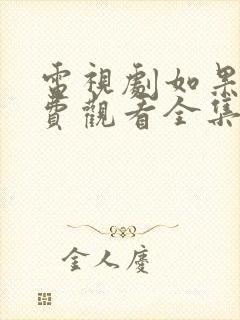 電視劇如果
費觀看全集
金人慶